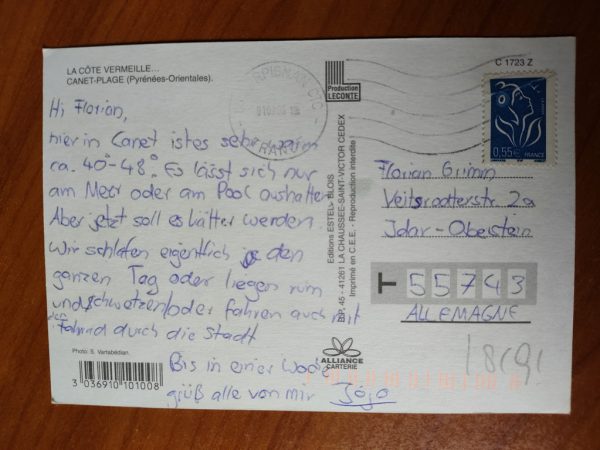 LA CÔTE VERMEILLE...
CANET-PLAGE (Pyrénées-Orientales).
Hi Florian,
hier in Canet ist es sehr warm
ca. 40°-48°. Es lässt sich nur
am Meer oder am Pool aushalten.
Aber jetzt soll es kälter werden.
Wir schlafen eigentlich den
ganzen Tag oder liegen rum
und schwetzen oder fahren auch mit
den Fahrrad durch die Stadt
Bis in einer Woche
grüß alle von mir Jojo
Photo: S. Vartabédian
3 036910 101008
Production
LECONTE
Editions ESTEL - BLOIS
B.P. 45 - 41261 LA CHAUSSEE-SAINT-VICTOR CEDEX
Imprimé en C.E.E. - Reproduction interdite
ALLIANCE
CARTERIE
C 1723 Z
0,55€ FRANCE
Florian Grimm
Veitsrodterstr. 2a
Idar-Oberstein
T 55743
ALLEMAGNE